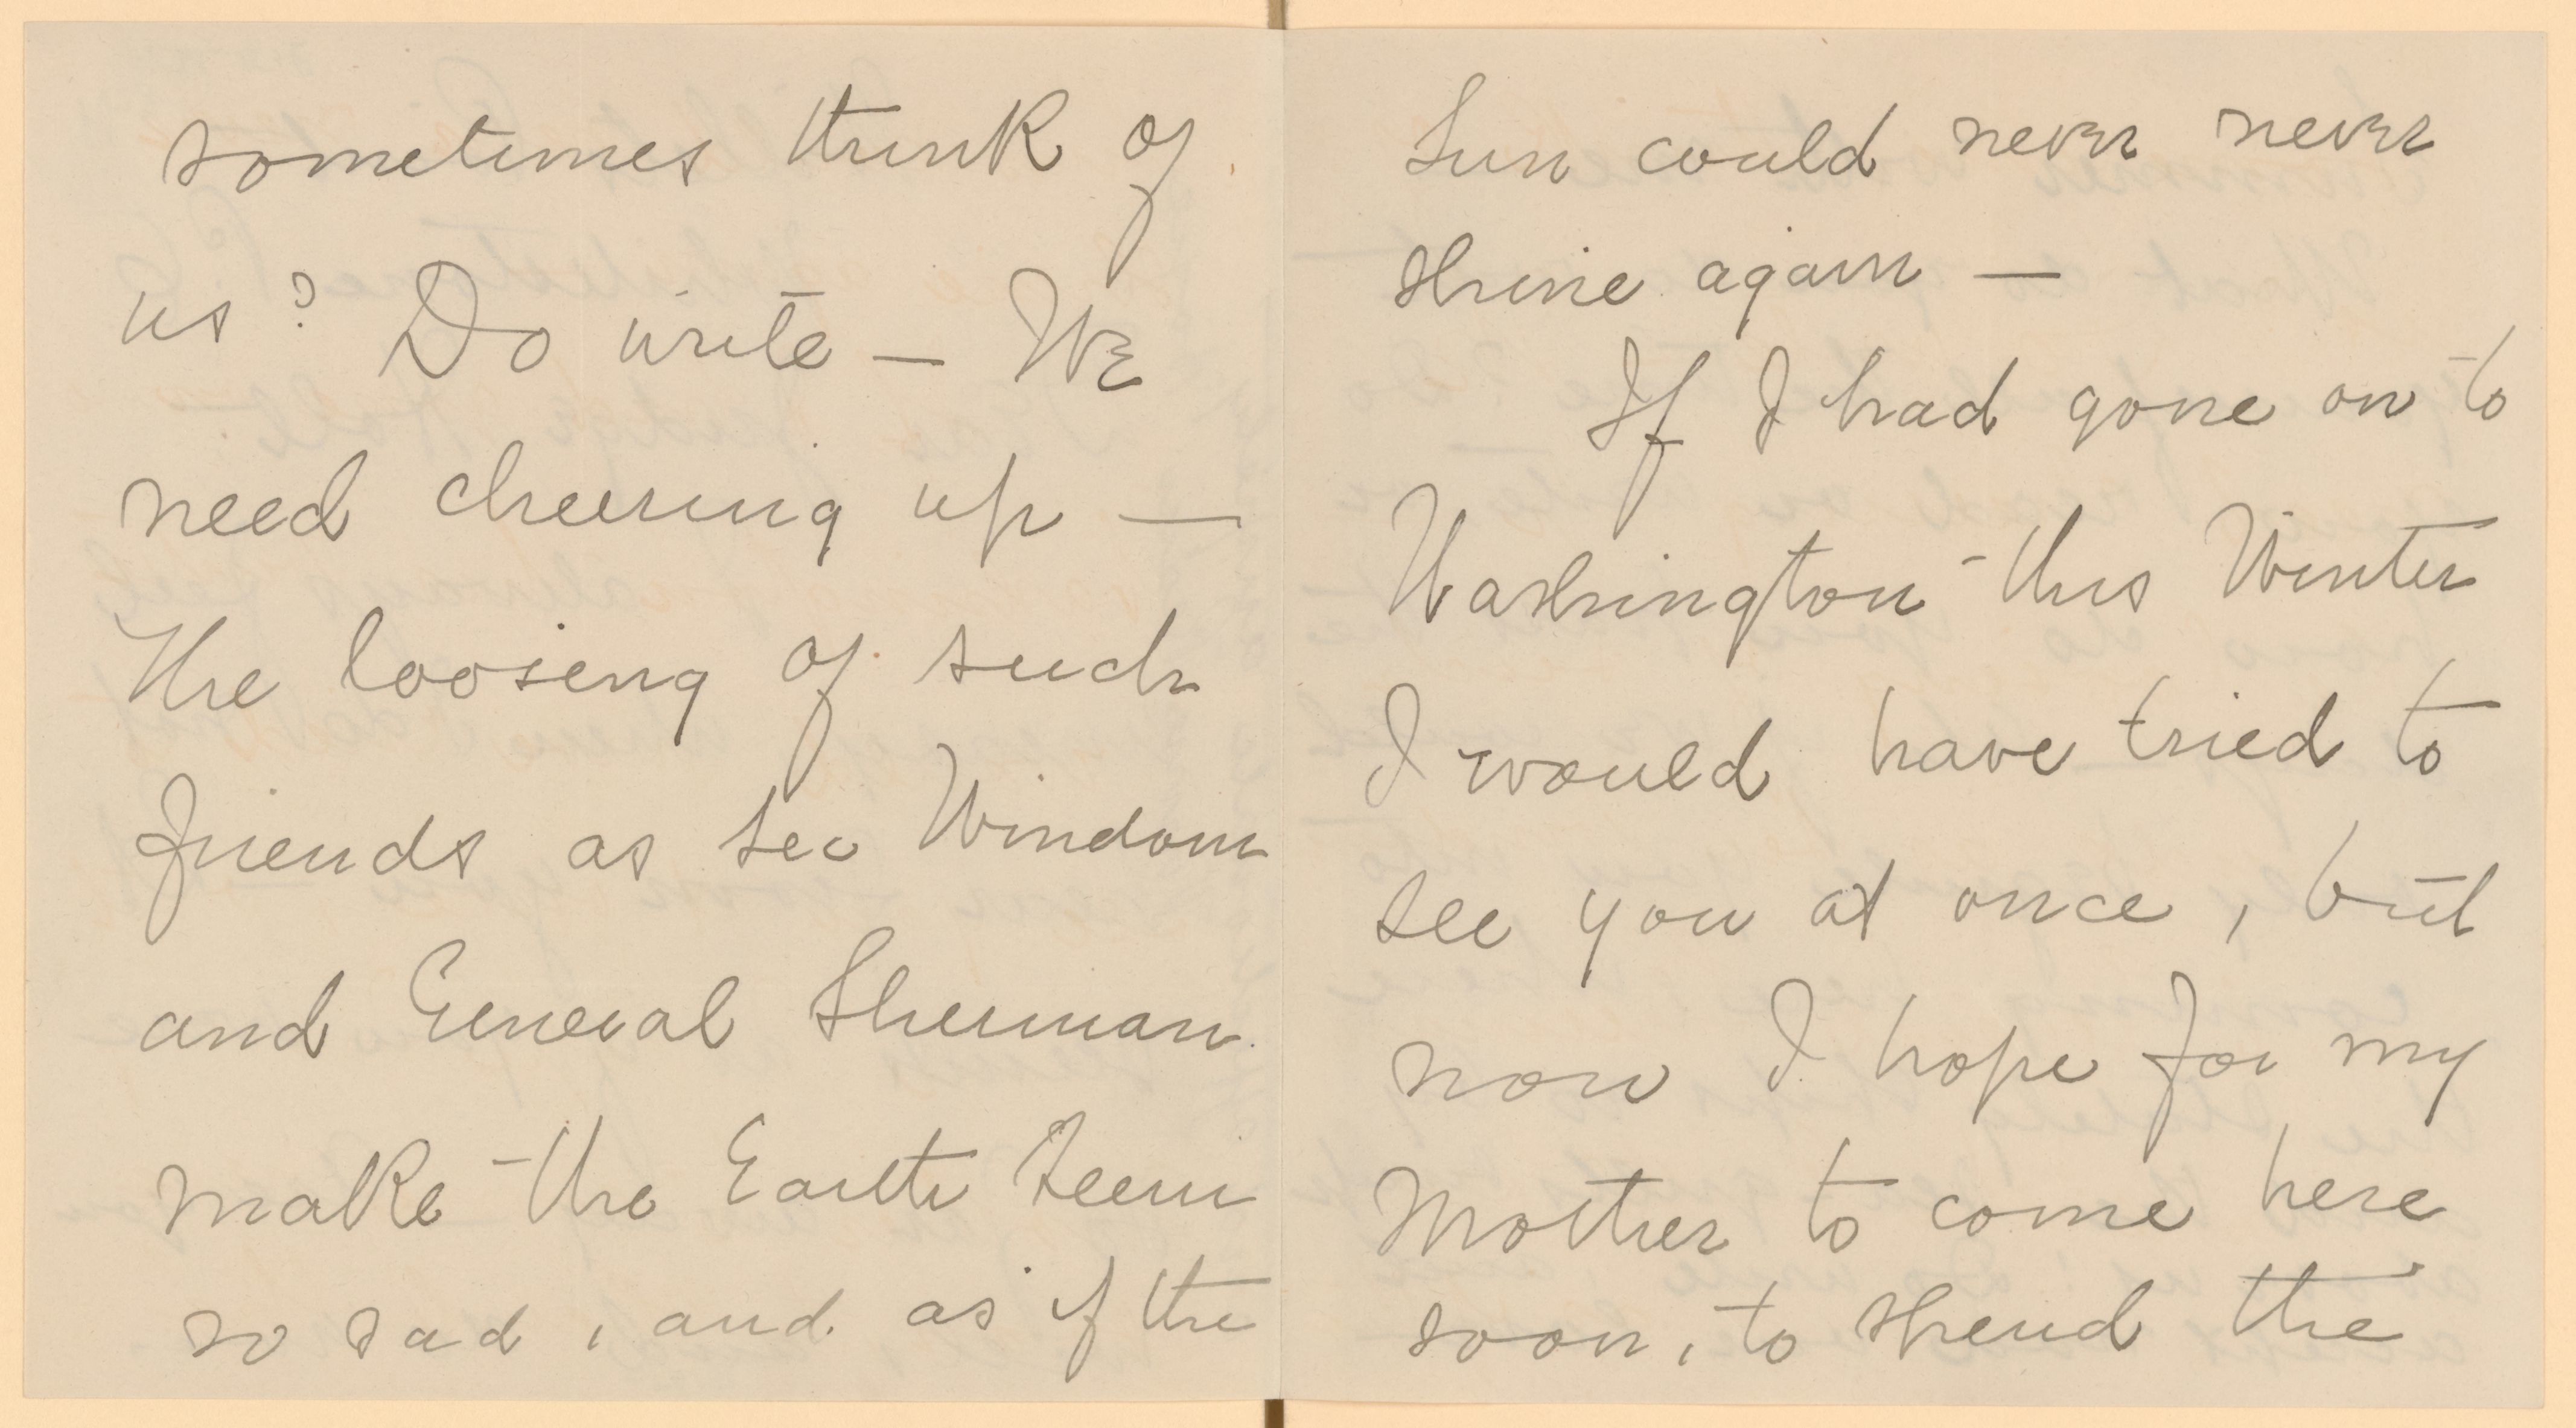 sometimes think of
us? Do write — We
need cheering up —
The loosing of such
friends as Sec Windom
and General Sherman
make the Earth Seem
so sad, and as if the
Sun could never never
shine again —
If I had gone on to
Washington this Winter
I would have tried to
see you at once, but
now I hope for my
Mother to come here
soon, to spend the